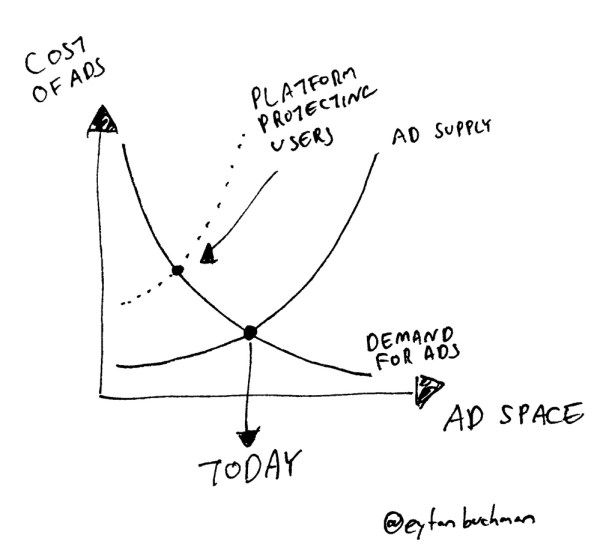 COST
OF ADS
PLATFORM
PROTECTING
USERS
AD SUPPLY
DEMAND
FOR ADS
AD SPACE
TODAY
@eytanbuchman